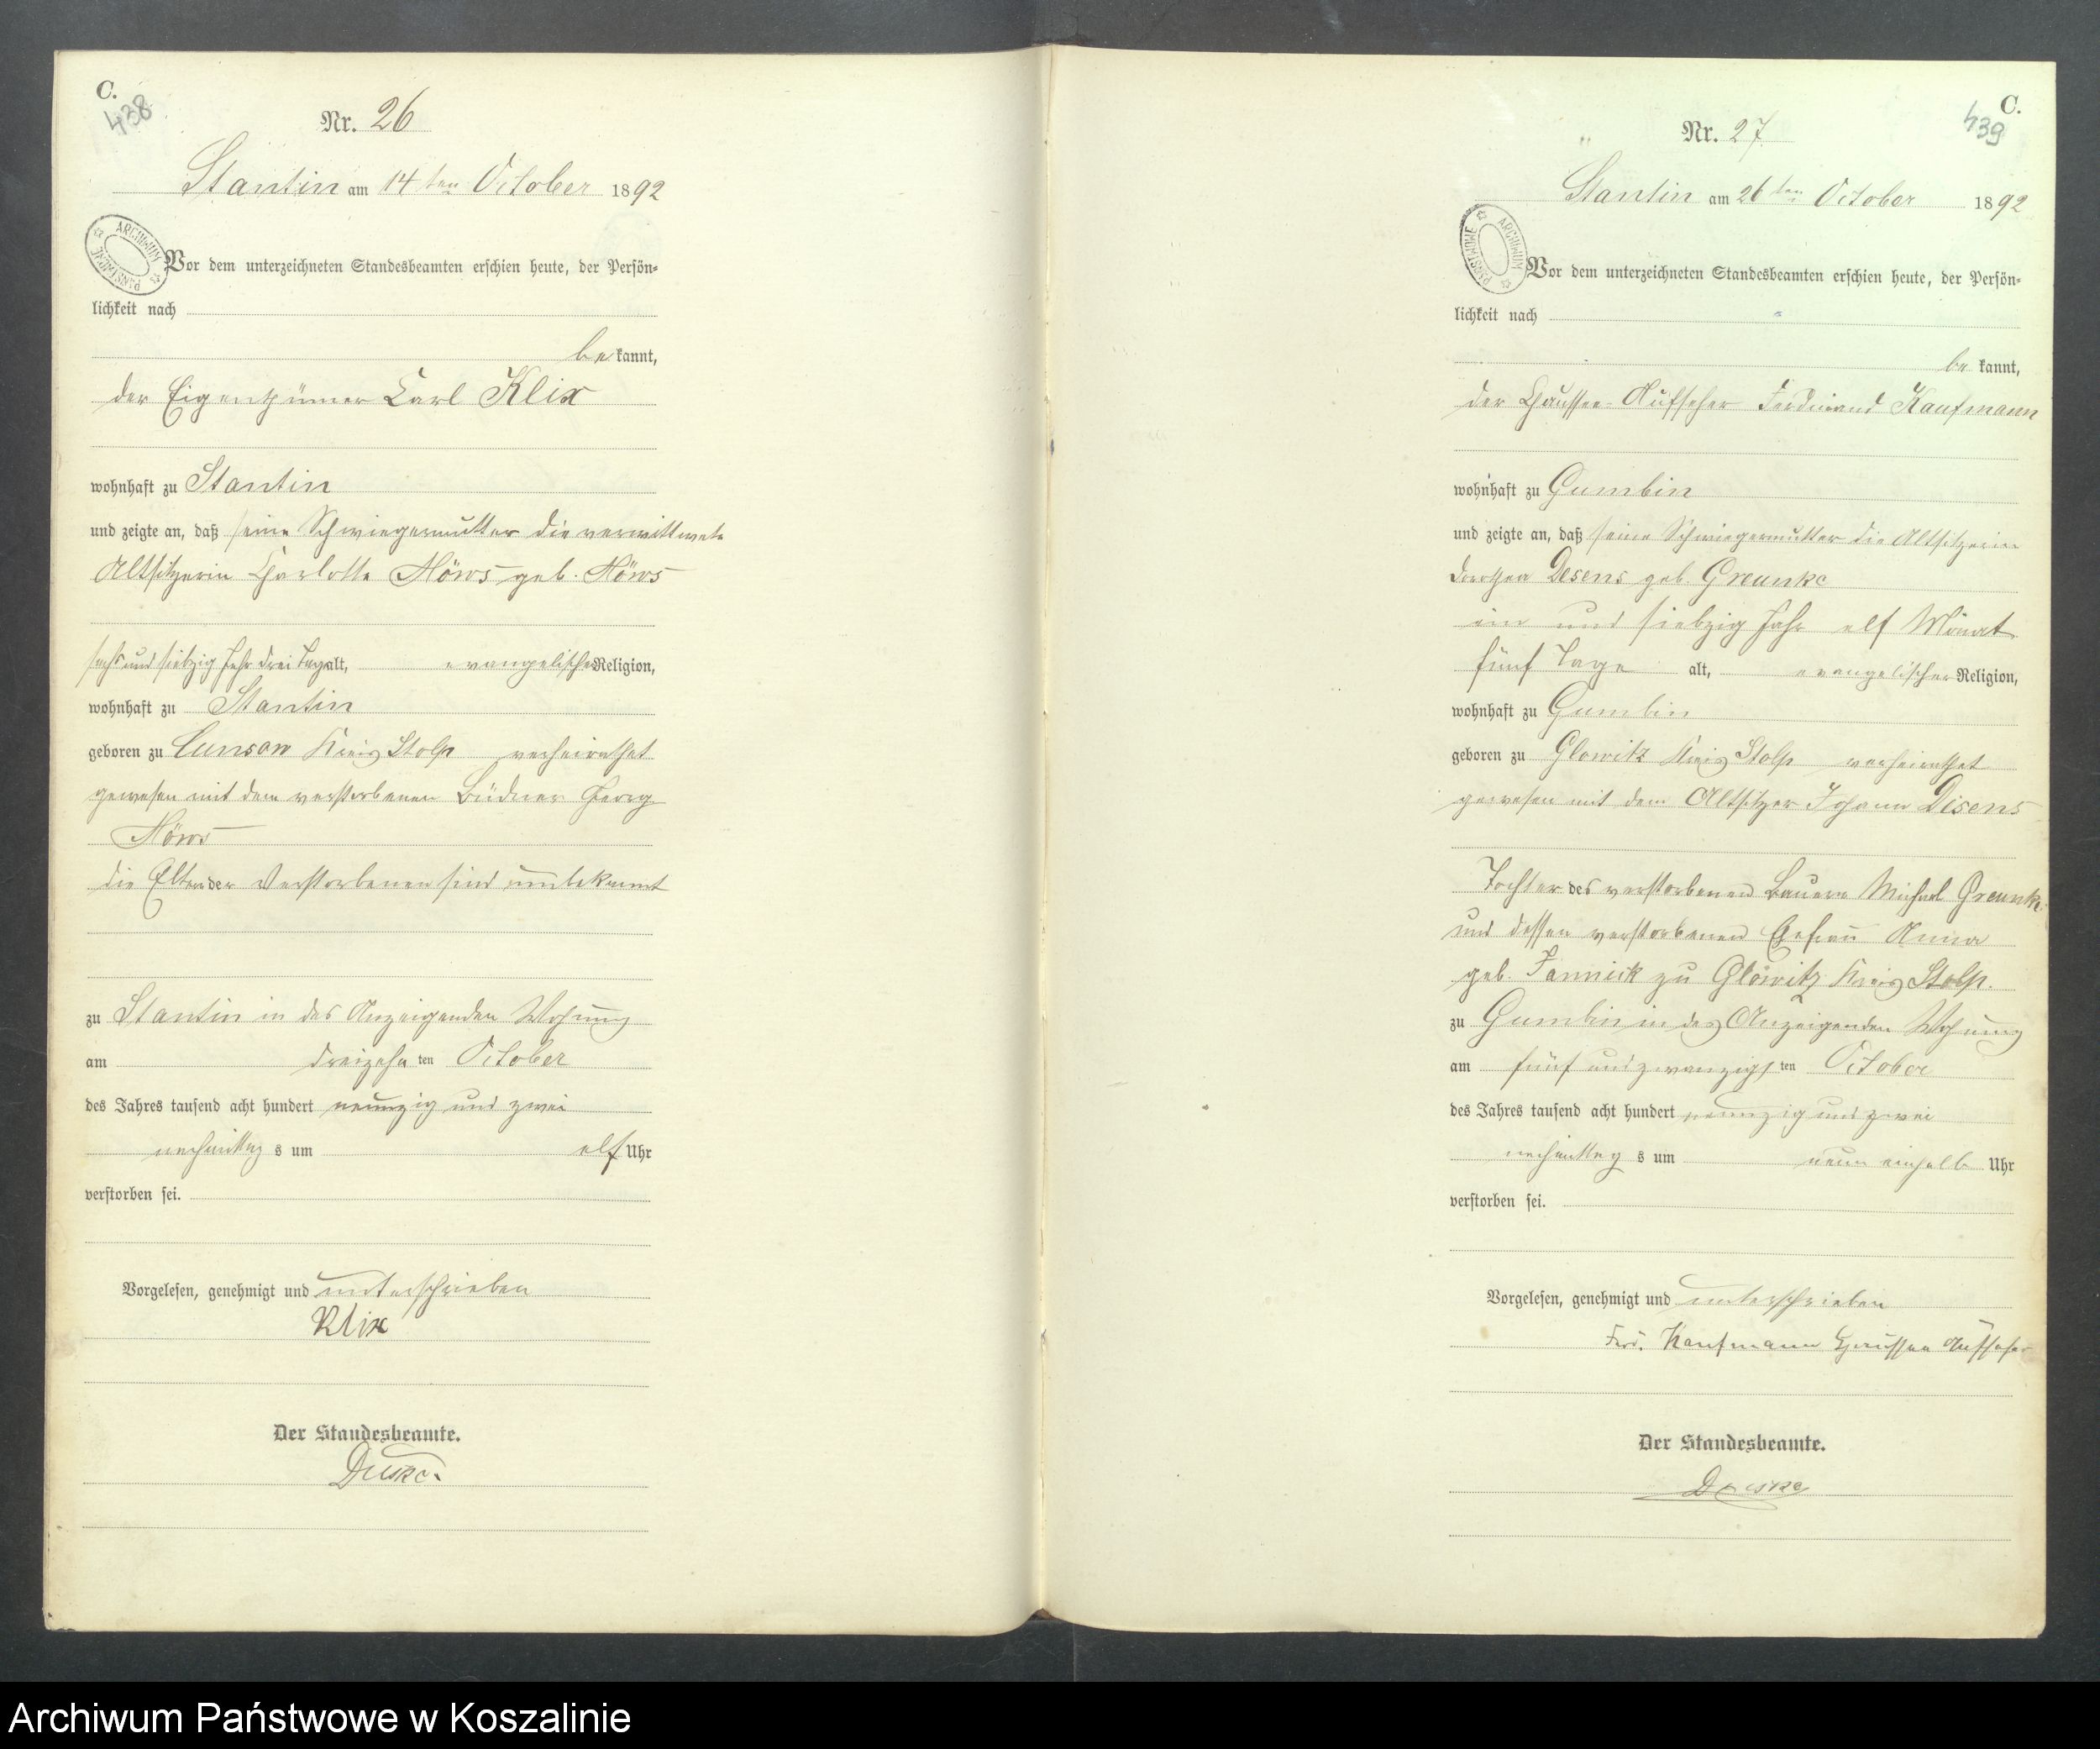 C.
438
Nr. 26
Stantin am 14ten October 1892
ARCHIWUM PAŃSTWOWE
Vor dem unterzeichneten Standesbeamten erschien heute, der Persön-
lichkeit nach
be kannt,
der Eigenthümer Carl Klix
wohnhaft zu Stantin
und zeigte an, daß seine Schwiegermutter die verwittwete
Altsitzerin Charlotte Nöws geb. Nöws
sechs und siebzig Jahr drei Tage alt, evangelischer Religion,
wohnhaft zu Stantin
geboren zu Cunsow Kreis Stolp verheirathet
gewesen mit dem verstorbenen Büdner Georg
Nöws
die Eltern der Verstorbenen sind unbekannt
zu Stantin in des Anzeigenden Wohnung
am dreizehn ten October
des Jahres tausend acht hundert neunzig und zwei
nachmittag s um elf Uhr
verstorben sei.
Vorgelesen, genehmigt und unterschrieben
Klix
Der Standesbeamte.
C.
439
Nr. 27
Stantin am 26ten October 1892
ARCHIWUM PAŃSTWOWE
Vor dem unterzeichneten Standesbeamten erschien heute, der Persön-
lichkeit nach
be kannt,
der Chaussee-Aufseher Ferdinand Kaufmann
wohnhaft zu Gumbin
und zeigte an, daß seine Schwiegermutter die Altsitzerin
Dorothea Desens geb. Greunke
ein und siebzig Jahr elf Monat
fünf Tage alt, evangelischer Religion,
wohnhaft zu Gumbin
geboren zu Glowitz Kreis Stolp verheirathet
gewesen mit dem Altsitzer Johann Disens
Tochter des verstorbenen Bauern Michael Greunke
und dessen verstorbenen Ehefrau Anna
geb. Jannick zu Glowitz Kreis Stolp.
zu Gumbin in des Anzeigenden Wohnung
am fünf und zwanzigs ten October
des Jahres tausend acht hundert neunzig und zwei
nachmittag s um neun einhalb Uhr
verstorben sei.
Vorgelesen, genehmigt und unterschrieben
Ferd. Kaufmann Chaussee Aufseher
Der Standesbeamte.
Archiwum Państwowe w Koszalinie